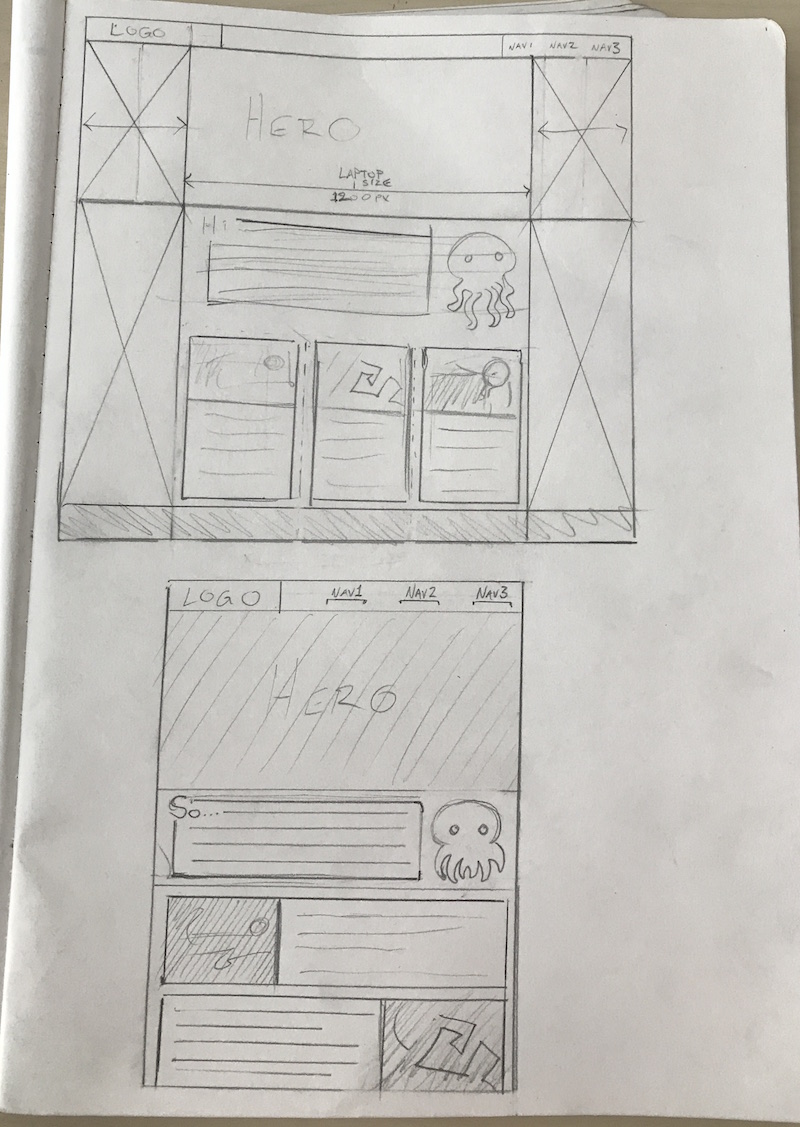 LOGO
NAV1 NAV2 NAV3
HERO
LAPTOP
SIZE
1200PX
Hi
LOGO NAV1 NAV2 NAV3
HERO
So...